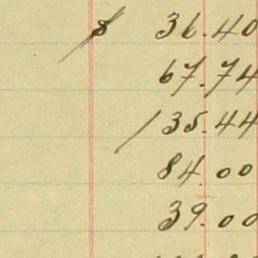 $ 36.40
67.74
135.44
84.00
39.00